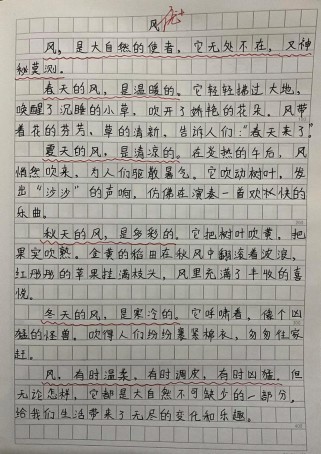 风
风，是大自然的使者，它无处不在，又神
秘莫测。
春天的风，是温暖的。它轻轻拂过大地，
唤醒了沉睡的小草，吹开了娇艳的花朵。风带
着花的芬芳、草的清新，告诉人们："春天来了"
夏天的风，是清凉的。在炎热的午后，风
悄然吹来，为人们驱散暑气。它吹动树叶，发
出"沙沙"的声响，仿佛在演奏一首欢快的
乐曲。
秋天的风，是多彩的。它把树叶吹黄，把
果实吹熟。金黄的稻田在秋风中翻滚着波浪，
红彤彤的苹果挂满枝头，风里充满了丰收的喜
悦。
冬天的风，是寒冷的。它呼啸着，像个凶
猛的怪兽。吹得人们纷纷裹紧棉衣，匆匆往家
赶。
风，有时温柔，有时调皮，有时凶猛，但
无论怎样，它都是大自然不可缺少的一部分，
给我们生活带来了无尽的变化和乐趣。